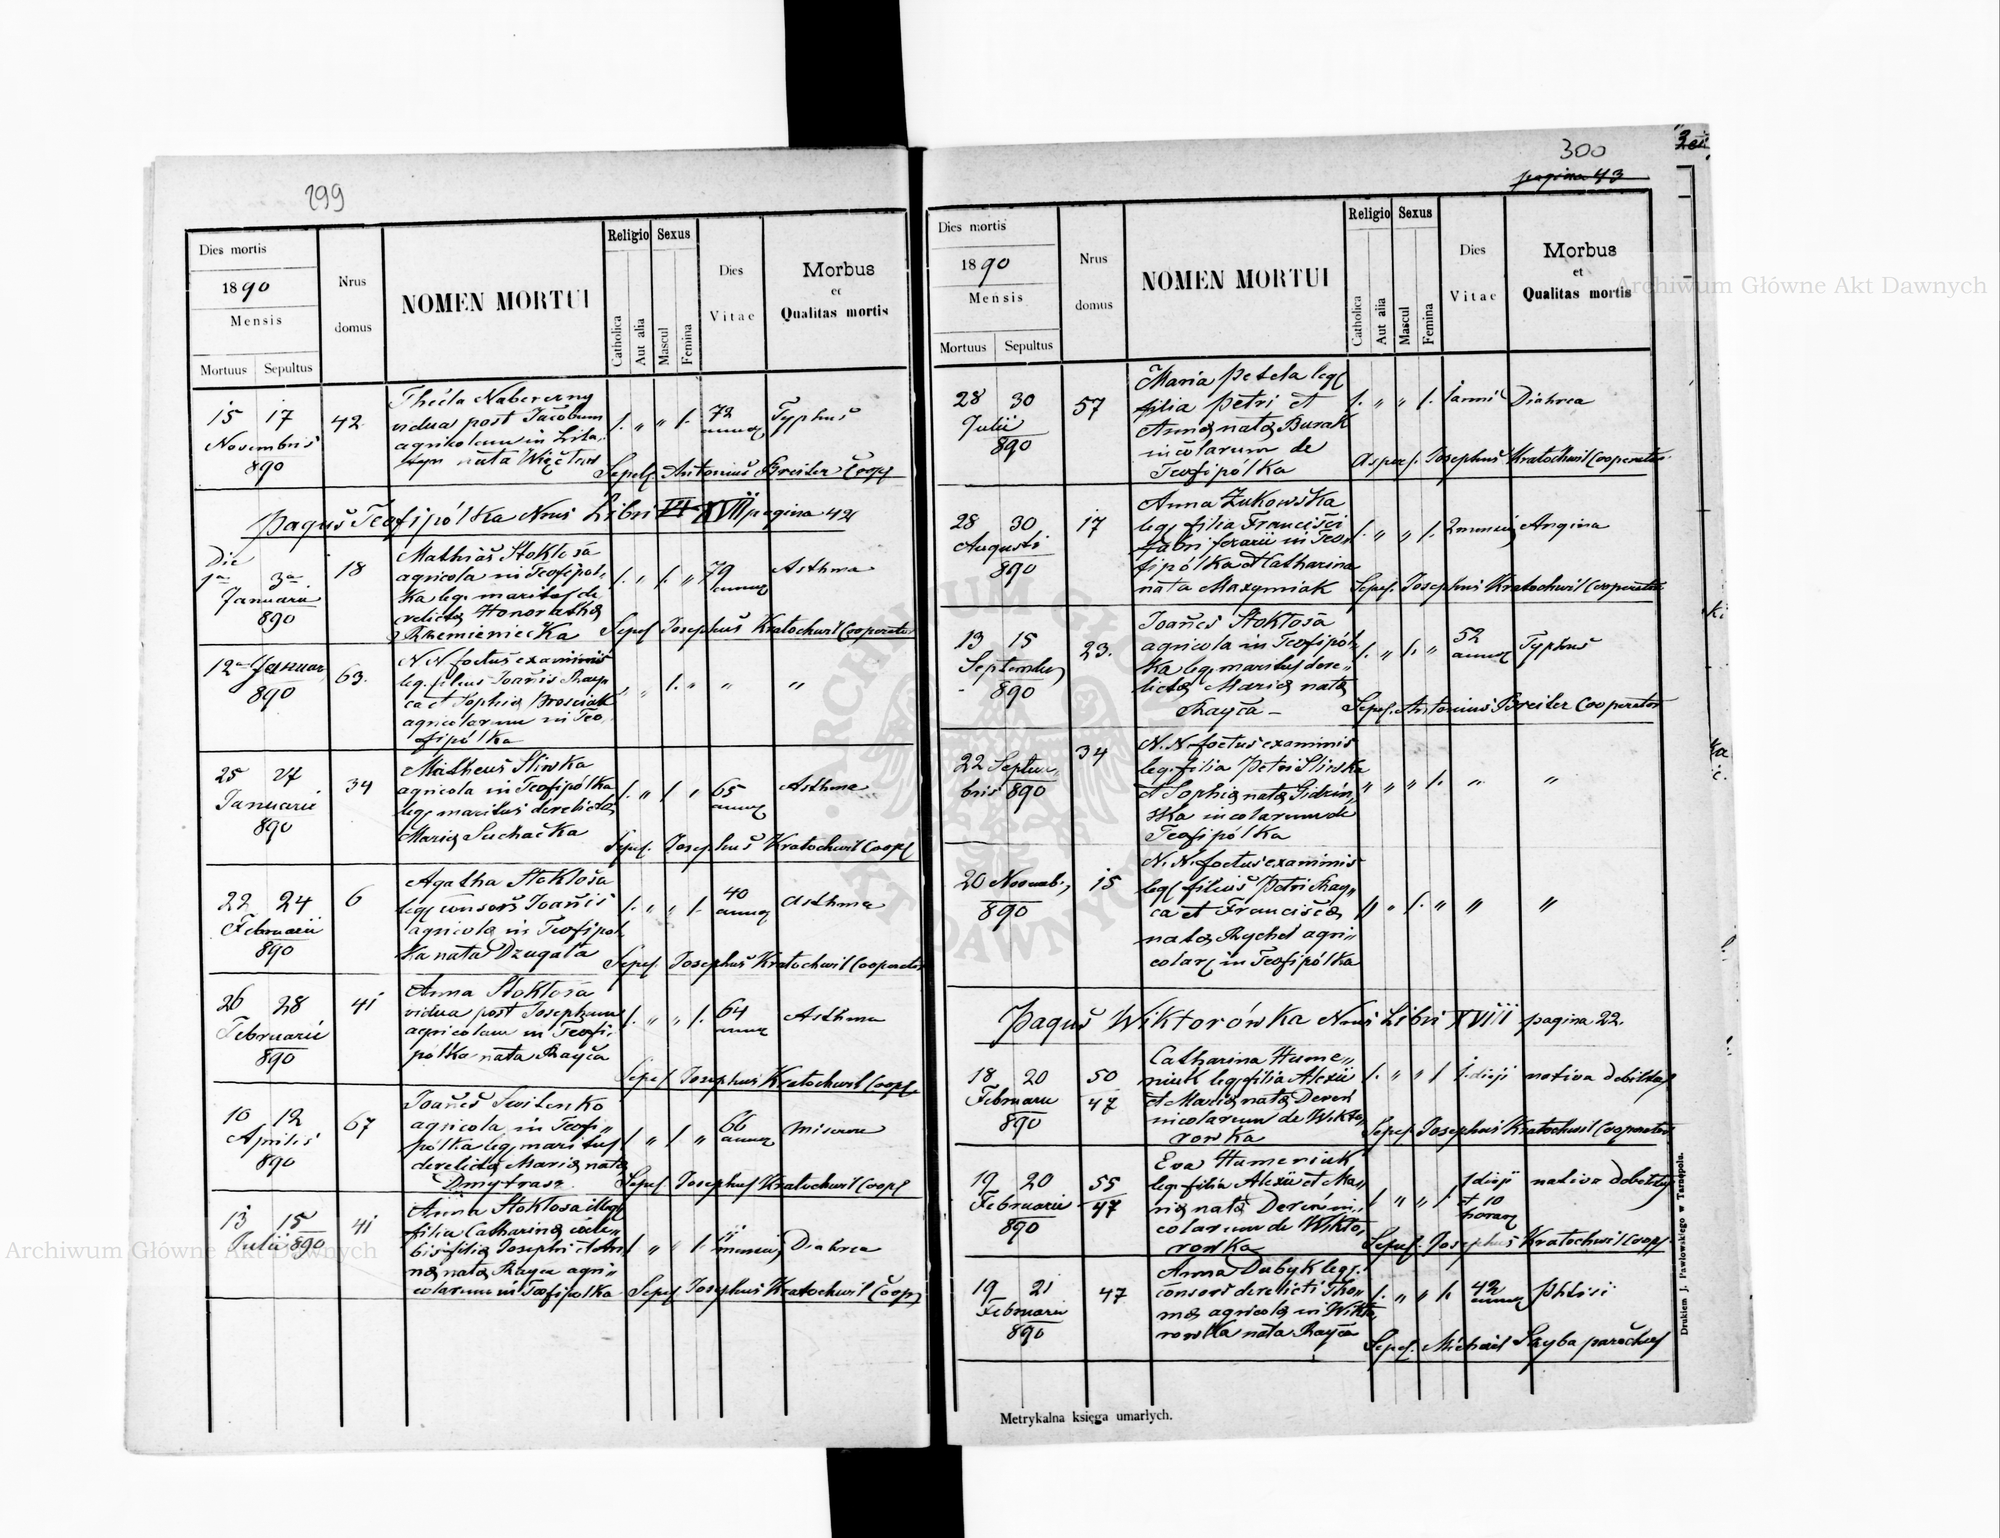 299
Dies mortis
1890
Mensis
Mortuus Sepultus
Nrus domus
NOMEN MORTUI
Religio
Catholica
Aut alia
Sexus
Mascul
Femina
Dies Vitae
Morbus
et
Qualitas mortis
15 17
Novembris
890
42
Thecla Naberezny
vidua post Jacobum
agrikolam in
nata
1. " " 1.
72
annor
Typhus
Sepel. Antonius Breiter Coop
Pagus Teofipólka Nrus Libri XVII pagina 42
Die
1a 3a
Januarii
890
18
Mathias Stoktosa
agricola in Teofipol-
ka leg. maritus de
relicta Honoratha
Krzemieniecka
1. " 1. "
79
annor
Asthma
Sepel Josephus Kratochwil Cooperator
12a Januar
890
63.
N N foetus exanimis
leg. filius Joannis Ray
ca et Sophia Brosciak
agricolarum in Teo
fipólka
" " 1. " " "
25 27
Januarii
890
34
Matheus Sliwka
agricola in Teofipólka
leg. maritus derelicta
Maria Suchacka
1. " 1 "
65
annor
Asthma
Sepel. Josephus Kratochwil Coop
22 24
Februarii
890
6
Agatha Stoktosa
leg consors Joannis
agricola in Teofipol
ka nata Dzugata
1. " " 1.
40
annor
Asthma
Sepel. Josephus Kratochwil Cooperator
26 28
Februarii
890
41
Anna Stoktosa
vidua post Josephum
agricolam in Teofi-
pólka nata Rayca
1. " " 1.
64
annor
Asthma
Sepel Josephus Kratochwil Coop
10 12
Aprilis
890
67
Joannes Switenko
agricola in Teofi"
pólka leg maritus
derelicta Maria nata
Dmytrasz
1 " 1 "
66
annor
Sepel. Josephus Kratochwil Coop
13 15
Julii 890
41
Anna Stoktosa illeg
filia Catharina
filia Josephi et An
na nata Rayca agri"
colarum in Teofipolka
1 " " 1.
11
mensiu
Diahrea
Sepel Josephus Kratochwil Coop
300
pagina 43
Dies mortis
1890
Mensis
Mortuus Sepultus
Nrus domus
NOMEN MORTUI
Religio
Catholica
Aut alia
Sexus
Mascul
Femina
Dies Vitae
Morbus
et
Qualitas mortis
28 30
Julii
890
57
Maria Petela leg
filia Petri et
Anna nata Burak
incolarum de
Teofipólka
1. " " 1.
1 anni
Diahrea
Josephus Kratochwil Cooperator
28 30
Augusti
890
17
Anna Zukowska
leg filia Francisci
fabri ferarii in Teo"
fipólka et Catharina
nata Maxymiak
1. " " 1.
2 mensiu
Angina
Sepel. Josephus Kratochwil Cooperator
13 15
Septembr
890
23.
Joannes Stoktosa
agricola in Teofipól-
ka leg maritus dere-
licta Maria nata
Rayca -
1. " 1. "
52
annor
Typhus
Sepel. Antonius Breiter Cooperator
22 Septem
bris 890
34
N. N foetus exanimis
leg. filia Petri Sliwka
et Sophia nata
ska incolarum de
Teofipólka
" " " 1. " "
20 Novemb.
890
15
N. N. foetus exanimis
leg filius Petri Ray"
ca et Francisca
nata Rychel agri"
colar in Teofipólka
" " 1. " " "
Pagus Wiktorówka Nrus Libri XVIII pagina 22.
18 20
Februarii
890
50
47
Catharina Hume"
niuk leg filia Alexii
et Maria nata Dereń
incolarum de Wikto
rowka
1. " " 1
nativa debilitas
Sepel. Josephus Kratochwil Cooperator
19 20
Februarii
890
55
47
Eva Humeniuk
leg. filia Alexii et Ma-
ria nata Dereń in"
colarum de Wikto
rowka
1 " " 1
1 dieji
et 10
horar
nativa debilitas
Sepel. Josephus Kratochwil Coop.
19 21
Februarii
890
47
Anna Dubyk leg.
consors derelicti Tho"
ma agricola in Wikto
rowka nata Rayca
1. " " 1.
42
annor
Phtisi
Sepel. Michael Skyba parochus
Metrykalna księga umarłych.
Drukiem J. Pawłowskiego w Tarnopolu.
Archiwum Główne Akt Dawnych
Archiwum Główne Akt Dawnych
ARCHIWUM GŁÓWNE AKT DAWNYCH